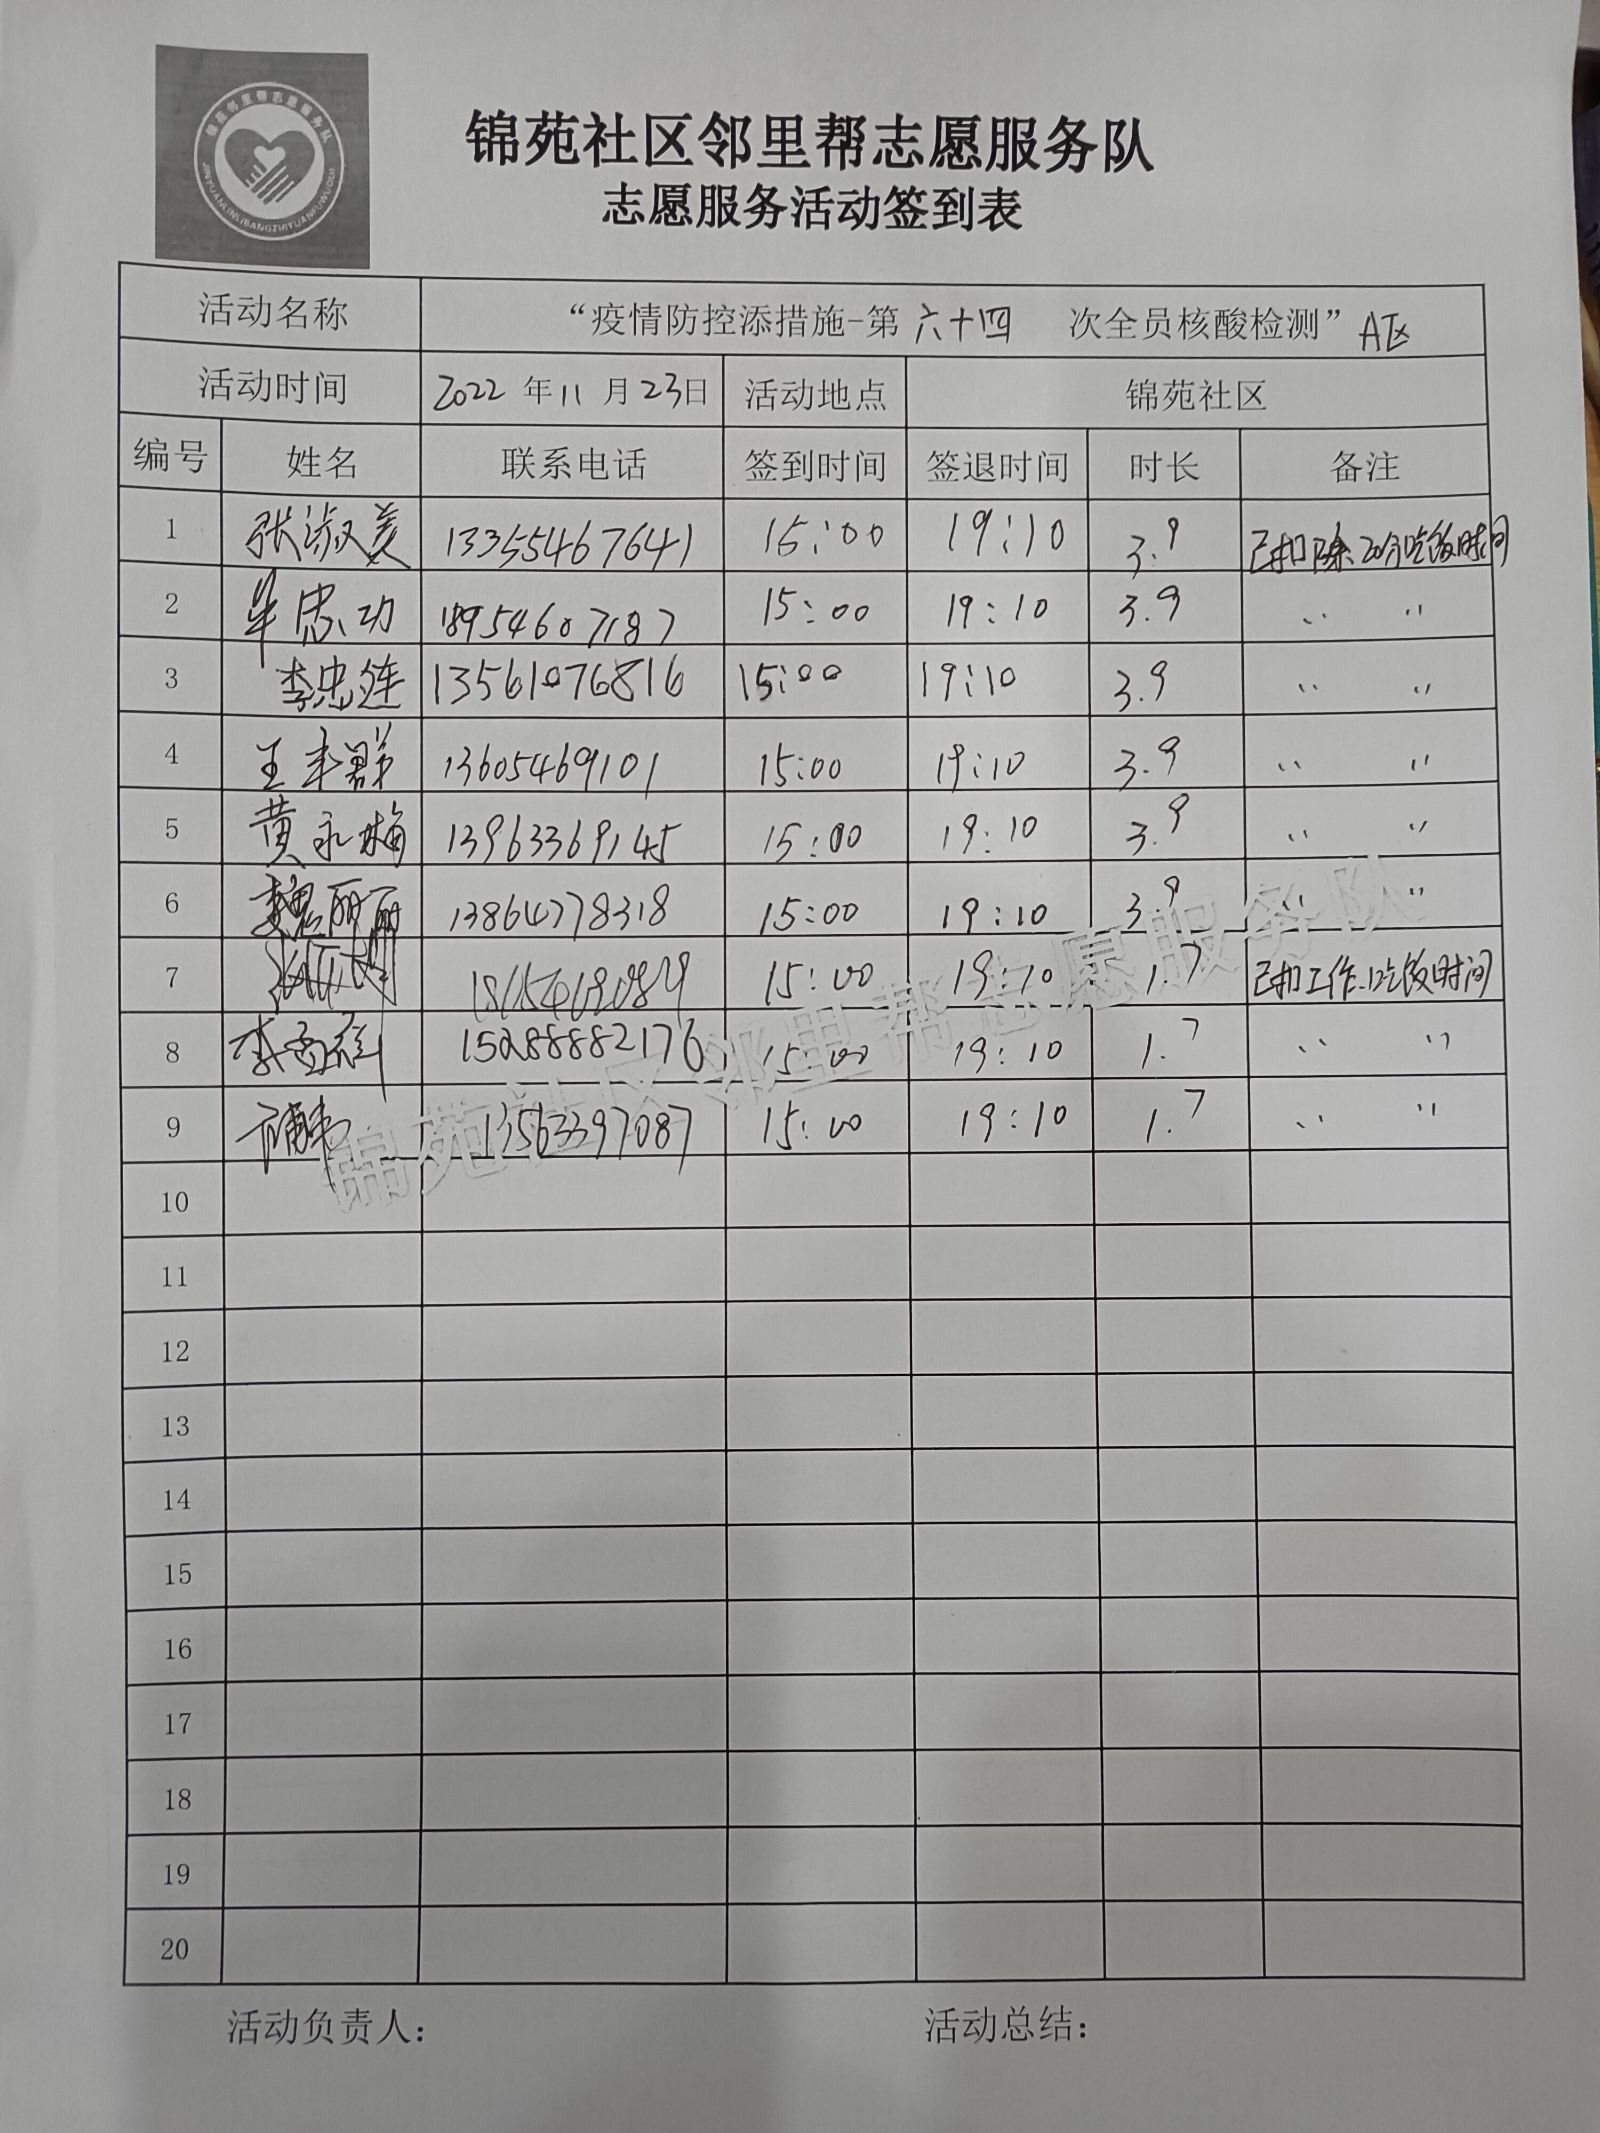 锦苑邻里帮志愿服务队
JINYUANLINLIBANGZHIYUANFUWUDUI
锦苑社区邻里帮志愿服务队
志愿服务活动签到表
活动名称 “疫情防控添措施-第六十四 次全员核酸检测” A区
活动时间 2022 年 11 月 23 日 活动地点 锦苑社区
编号 姓名 联系电话 签到时间 签退时间 时长 备注
1 张淑美 13355467641 15:00 19:10 3.9 已扣除20分吃饭时间
2 忠功 18954607187 15:00 19:10 3.9 〃 〃
3 李忠莲 13561076816 15:00 19:10 3.9 〃 〃
4 王丰群 13605469101 15:00 19:10 3.9 〃 〃
5 黄永梅 13963369145 15:00 19:10 3.9 〃 〃
6 魏丽丽 13864778318 15:00 19:10 3.9 〃 〃
7 15:00 19:10 1.7 已扣工作、吃饭时间
8 李 15288882176 15:00 19:10 1.7 〃 〃
9 13563397087 15:00 19:10 1.7 〃 〃
10
11
12
13
14
15
16
17
18
19
20
活动负责人： 活动总结：
锦苑社区邻里帮志愿服务队